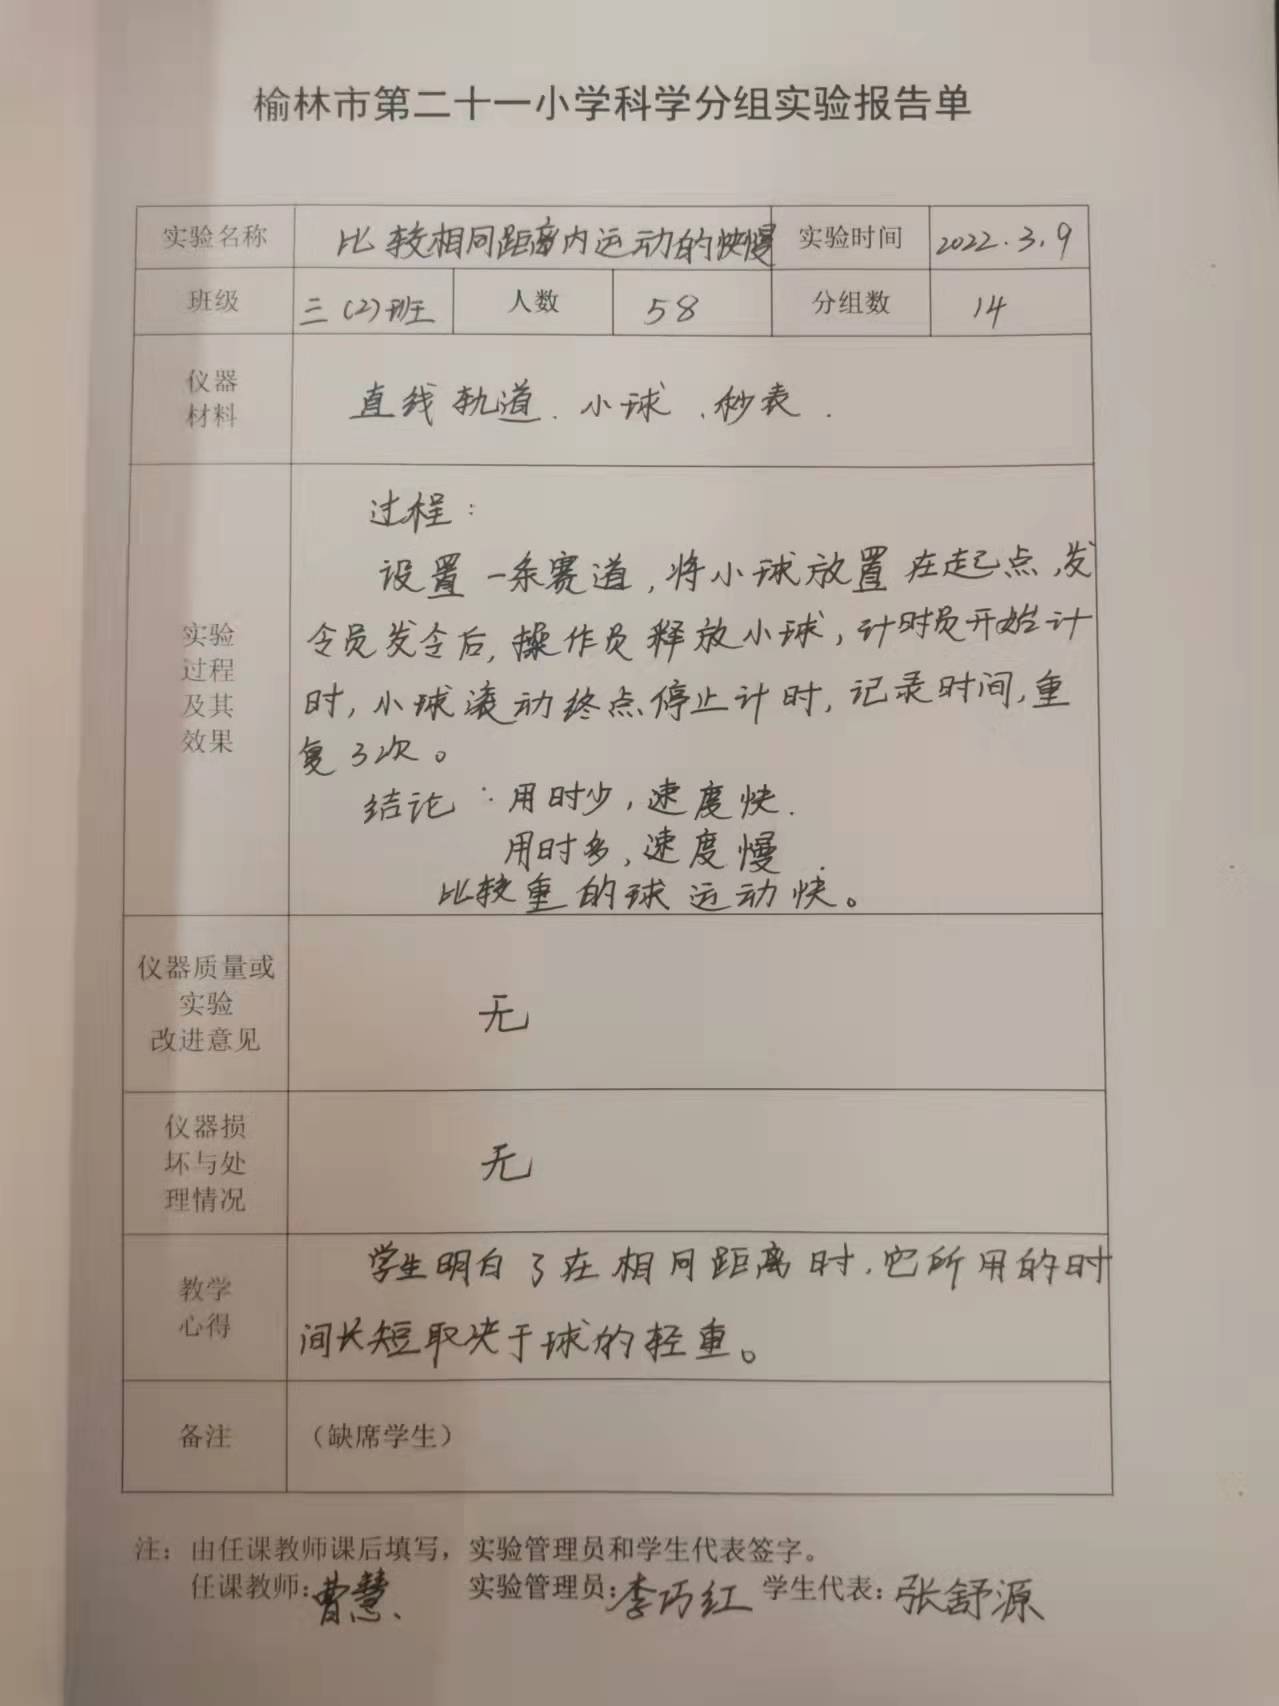 榆林市第二十一小学科学分组实验报告单
实验名称 比较相同距离内运动的快慢 实验时间 2022.3.9
班级 三(2)班 人数 58 分组数 14
仪器
材料
直线轨道、小球、秒表.
实验
过程
及其
效果
过程:
设置一条赛道,将小球放置在起点,发
令员发令后,操作员释放小球,计时员开始计
时,小球滚动终点停止计时,记录时间,重
复3次。
结论:用时少,速度快.
用时多,速度慢.
比较重的球运动快。
仪器质量或
实验
改进意见
无
仪器损
坏与处
理情况
无
教学
心得
学生明白了在相同距离时,它所用的时
间长短取决于球的轻重。
备注 (缺席学生)
注:由任课教师课后填写,实验管理员和学生代表签字。
任课教师:曹慧、 实验管理员:李巧红 学生代表:张舒源